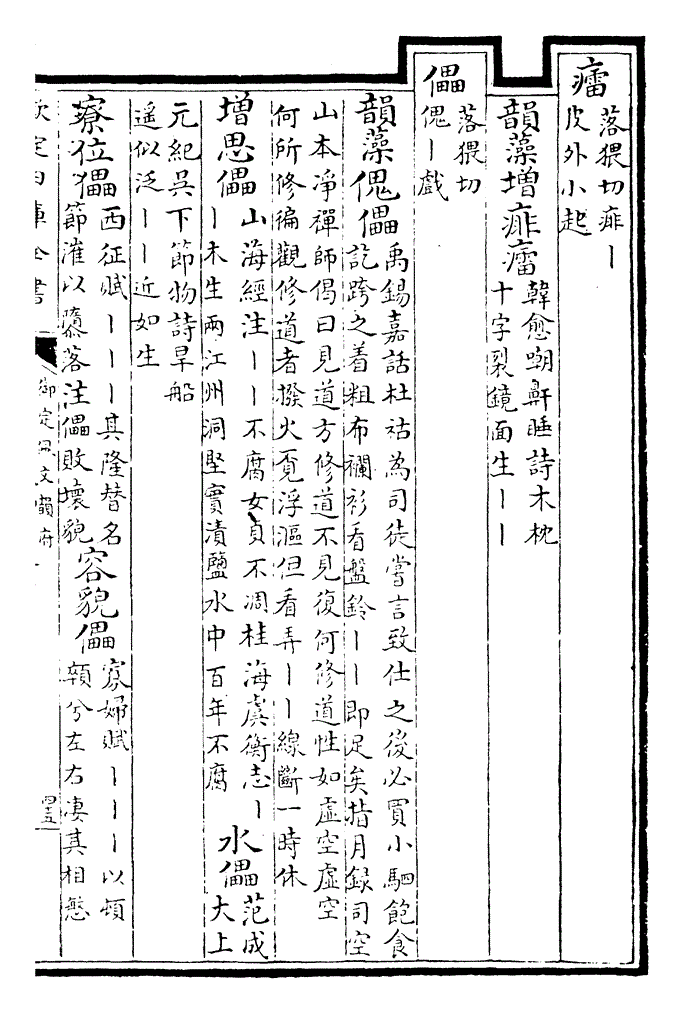 癗落猥切痱丨
皮外小起
韻藻增痱癗韓愈嘲鼾睡詩木枕
十字裂鏡面生丨丨
儡落猥切
傀丨戲
韻藻傀儡禹錫嘉話杜祜為司徒嘗言致仕之後必買小駟飽食
訖跨之着粗布襴衫看盤鈴丨丨即足矣指月録司空
山本凈禪師偈曰見道方修道不見復何修道性如虛空虛空
何所修徧觀修道者撥火覓浮漚但看弄丨丨線斷一時休
增思儡山海經注丨丨不腐女貞不凋桂海虞衡志丨
丨木生兩江州洞堅實漬鹽水中百年不腐
水儡范成
大上
元紀吳下節物詩旱船
遥似泛丨丨近如生
寮位儡西征賦丨丨丨其隆替名
節漼以隳落注儡敗壞貌
容貌儡寡婦賦丨丨丨以頓
顇兮左右凄其相慜
欽定四庫全書
御定佩文韻府
四五